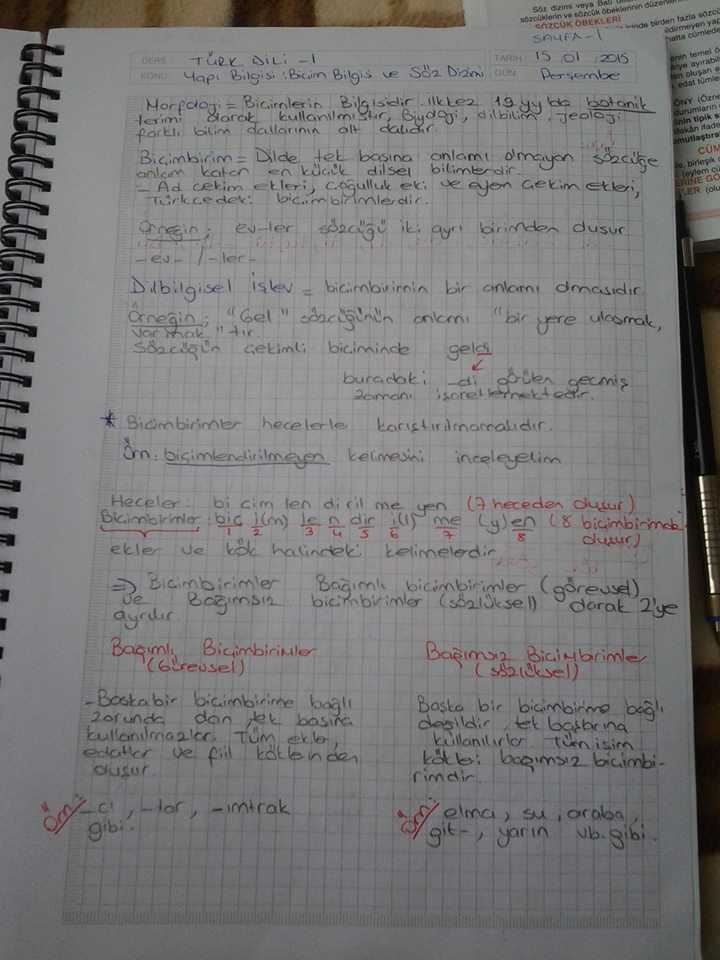 Söz dizimi veya
sözcüklerin ve sözcük öbeklerinin
SÖZCÜK ÖBEKLERİ
birden fazla
SAYFA-1
DERS: TÜRK DİLİ -1 TARİH 15 01 2015
KONU: Yapı Bilgisi : Bicim Bilgis ve Söz Dizimi GÜN: Perşembe
Morfoloji = Bicimlerin Bilgisidir. İlk kez 19.yy'da botanik
terimi olarak kullanılmıştır, Biyoloji, dilbilim, jeoloji
farklı bilim dallarının alt dalıdır.
Biçimbirim = Dilde tek basına anlamı olmayan sözcüğe
anlam katan en kücük dilsel bilimlerdir.
- Ad cekim ekleri, coğulluk eki ve eyem cekim ekleri,
Türkcedeki bicimbirimlerdir.
Örneğin; ev-ler sözcüğü iki ayrı birimden olusur.
-ev- / -ler-
Dilbilgisel İslev = bicimbirimin bir anlamı olmasıdır.
Örneğin; "Gel" sözcüğünün anlamı "bir yere ulasmak,
varmak"tır.
Sözcüğün cekimli biciminde geldi
buradaki -di görülen gecmiş
zamanı isaretlemektedir.
* Bicimbirimler hecelerle karıstırılmamalıdır.
Örn: biçimlendirilmeyen kelimesini inceleyelim
Heceler: bi cim len di ril me yen (7 heceden olusur)
Bicimbirimler: bic i(m) le n dir i(l) me (y)en (8 biçimbirimden
1 2 3 4 5 6 7 8 olusur)
ekler ve kök halindeki kelimelerdir
⇒ Bicimbirimler Bağımlı bicimbirimler (görevsel)
ve Bağımsız bicimbirimler (sözlüksel) olarak 2'ye
ayrılır.
Bagımlı Bicimbirimler
(Görevsel)
- Baska bir bicimbirime bağlı
zorunda olan, tek basına
kullanılmazlar. Tüm ekler,
edatlar ve fiil köklerinden
olusur.
Örn: -cı, -lar, -ımtrak
gibi.
Bağımsız Bicimbirimler
(sözlüksel)
Baska bir bicimbirime bağlı
degildir, tek baslarına
kullanılırlar. Tüm isim
kökleri bagımsız bicimbi-
rimdir.
Örn: elma, su, araba,
git-, yarın vb. gibi.